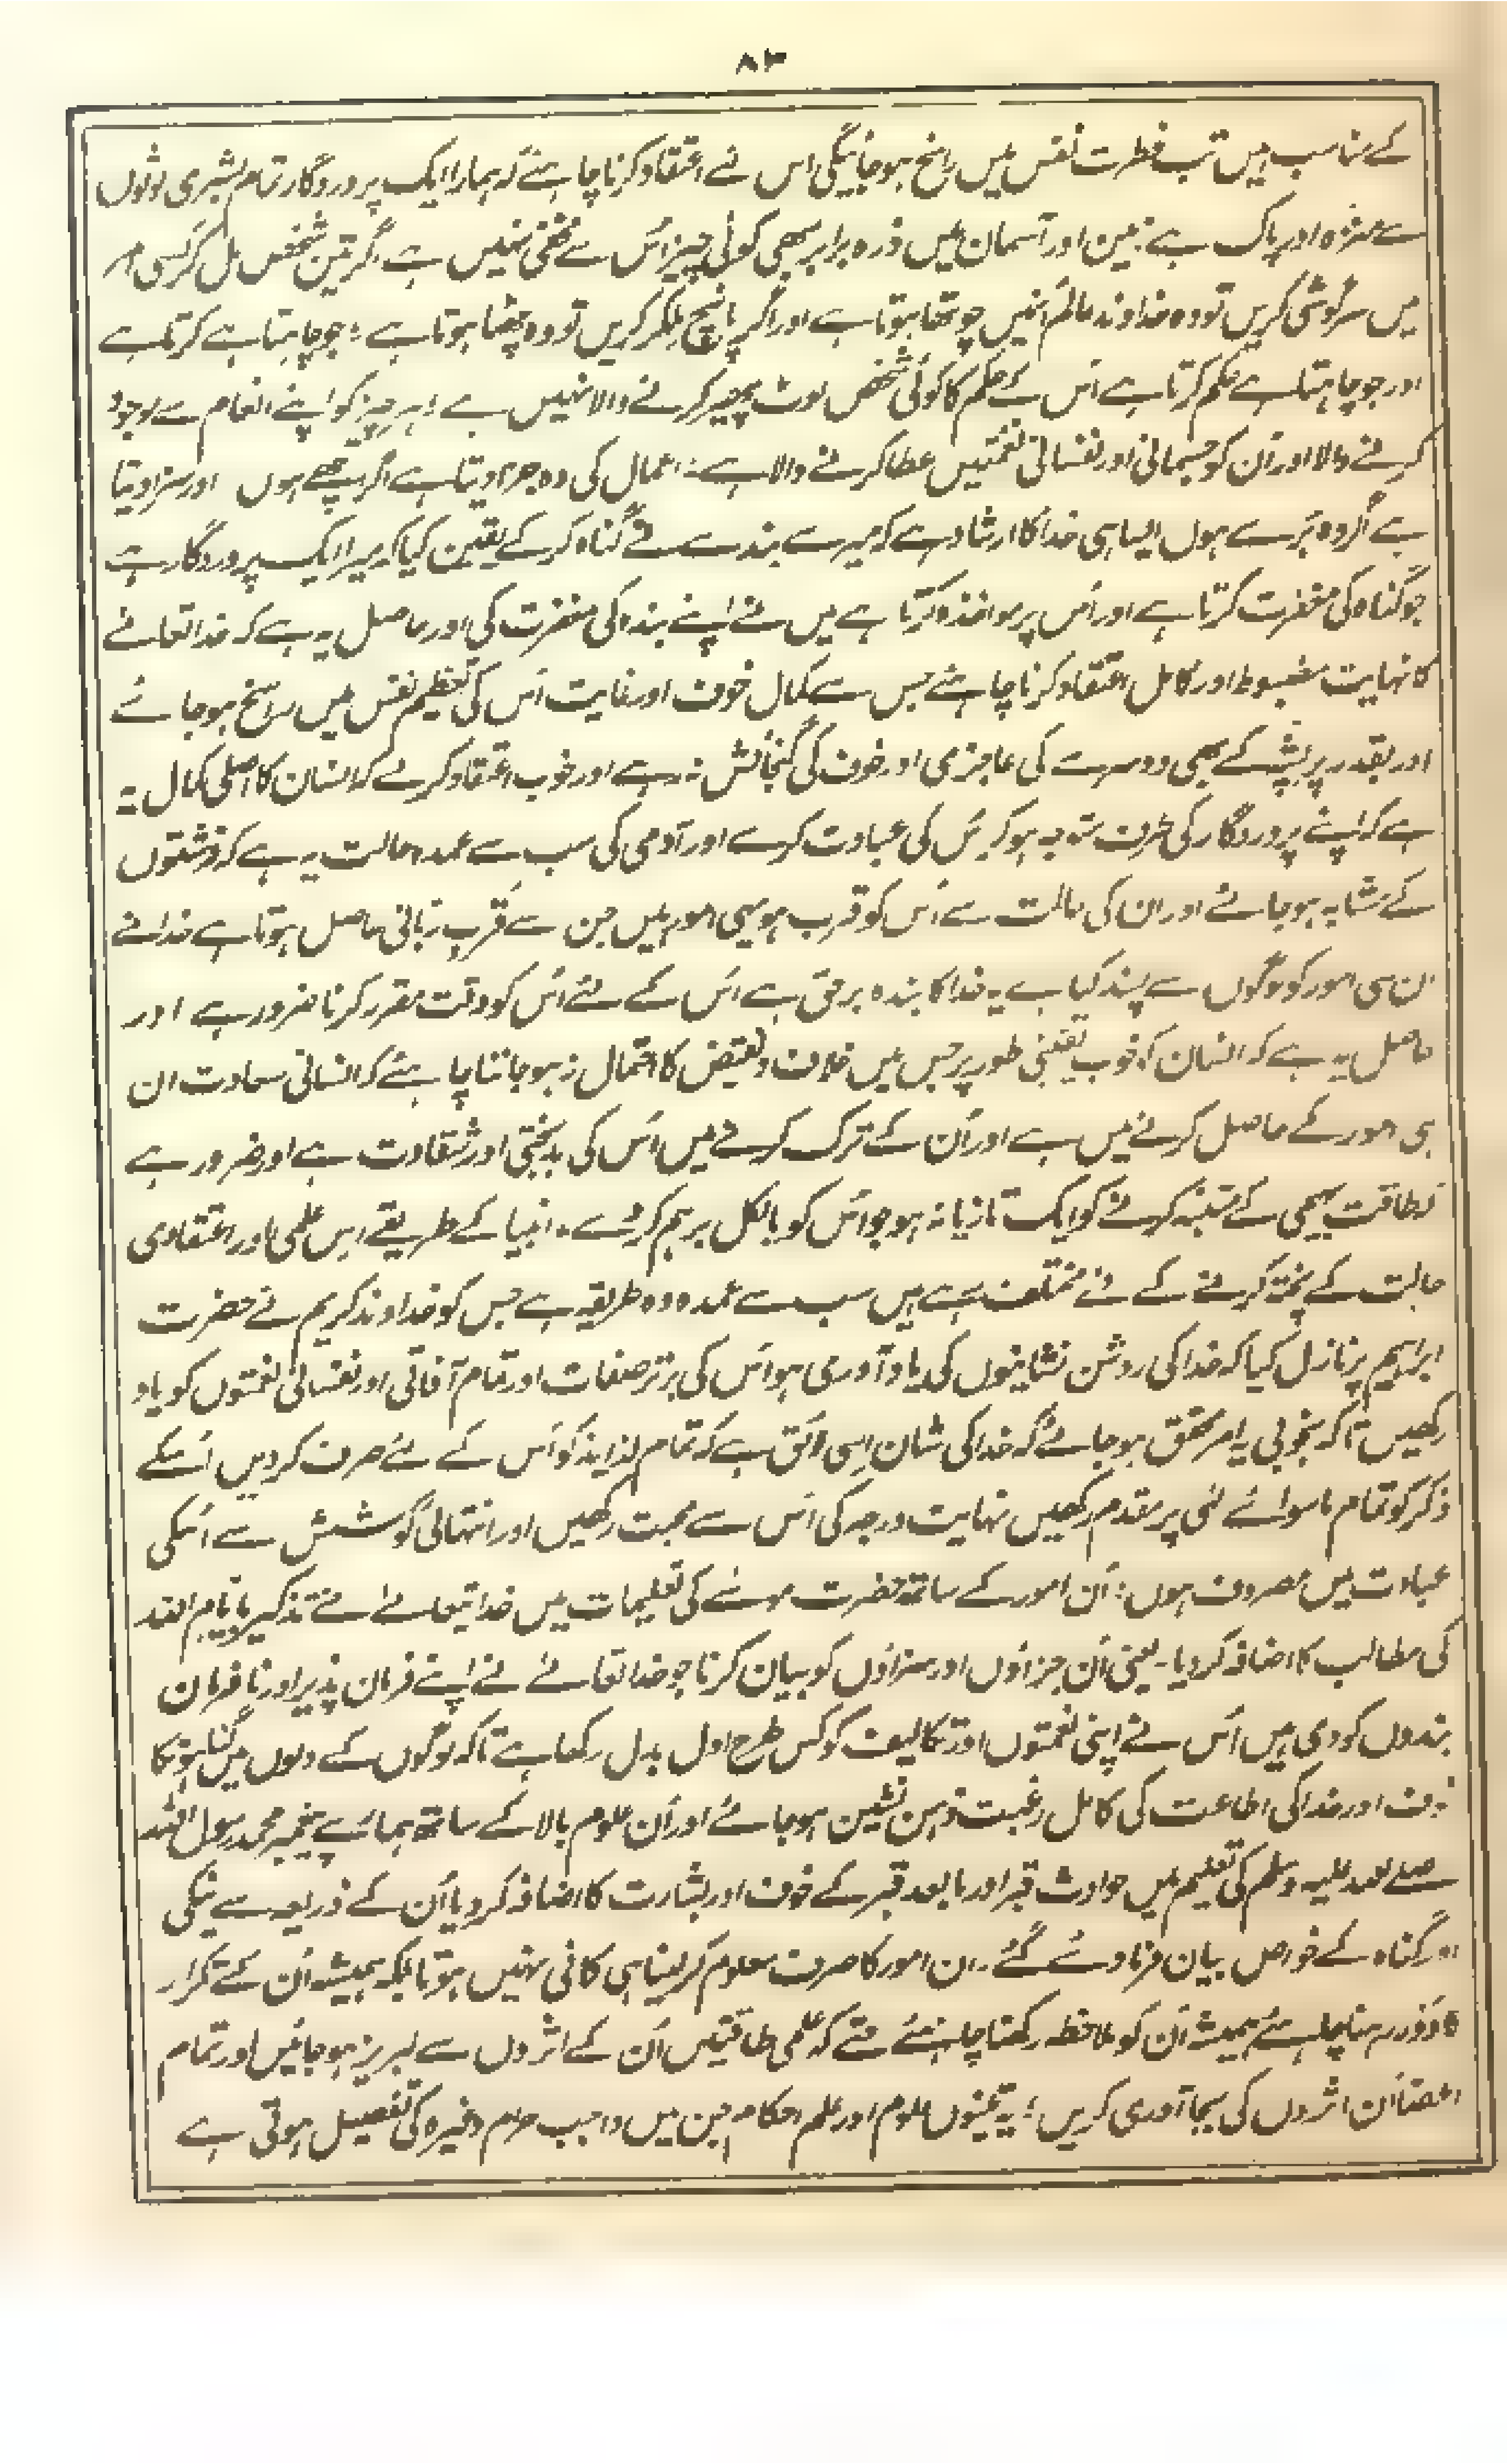 ۸۳
کے مناسب ہیں تب فطرت نفس میں راسخ ہو جائیگی اس لئے اعتقاد کرنا چاہئے کہ ہمارا ایک پروردگار تمام بشری لوثوں
سے منزہ اور پاک ہے زمین اور آسمان میں ذرہ برابر بھی کوئی چیز اُس سے مخفی نہیں ہے اگر تین شخص مل کر کسی امر
میں سرگوشی کریں تو وہ خداوند عالم اُنہیں چوتھا ہوتا ہے اور اگر پانچ ملکر کریں تو وہ چھٹا ہوتا ہے؛ جو چاہتا ہے کرتا ہے
اور جو چاہتا ہے حکم کرتا ہے اُس کے حکم کا کوئی شخص لوٹ پھیر کرنے والا نہیں ہے؛ ہر چیز کو اپنے انعام سے موجود
کرنے والا اور اُن کو جسمانی اور نفسانی نعمتیں عطا کرنے والا ہے؛ اعمال کی وہ جزا دیتا ہے اگر اچھے ہوں اور سزا دیتا
ہے اگر وہ بُرے ہوں ایسا ہی خدا کا ارشاد ہے کہ میرے بندے نے گناہ کر کے یقین کیا کہ میرا ایک پروردگار ہے
جو گناہ کی مغفرت کرتا ہے اور اُس پر مواخذہ کرتا ہے میں نے اپنے بندہ کی مغفرت کی اور حاصل یہ ہے کہ خدا تعالےٰ
کا نہایت مضبوط اور کامل اعتقاد کرنا چاہئے جس سے کمال خوف اور غایت اُس کی تعظیم نفس میں راسخ ہو جائے
اور بقدر پر پشہ کے بھی دوسرے کی عاجزی اور خوف کی گنجائش نہ رہے اور خوب اعتقاد کرلے کہ انسان کا اصلی کمال یہ
ہے کہ اپنے پروردگار کی طرف متوجہ ہو کر اس کی عبادت کرے اور آدمی کی سب سے عمدہ حالت یہ ہے کہ فرشتوں
کے مشابہ ہو جائے اور ان کی حالت سے اُس کو قرب ہو یہی امور ہیں جن سے قُرب ربّانی حاصل ہوتا ہے خدا نے
ان ہی امور کو لوگوں سے پسند کیا ہے یہ خدا کا بندہ پر حق ہے اُس کے لئے اُس کو وقت مقرر کرنا ضرور ہے اور
حاصل یہ ہے کہ انسان کو خوب یقینی طور پر جس میں خلاف و نقیض کا احتمال نہ ہو جاننا چاہئے کہ انسانی سعادت ان
ہی امور کے حاصل کرنے میں ہے اور اُن کے ترک کرنے میں اُس کی بدبختی اور شقاوت ہے اور ضرور ہے
کہ طاقت بہیمی کے متنبہ کرنے کو ایک تازیانہ ہو جو اُس کو بالکل برہم کر دے۔ انبیا کے طریقے اس علمی اور اعتقادی
حالت کے پختہ کرنے کے لئے مختلف رہے ہیں سب سے عمدہ وہ طریقہ ہے جس کو خداوند کریم نے حضرت
ابراہیم پر نازل کیا کہ خدا کی روشن نشانیوں کی یاد آوری ہو اُس کی برتر صفات اور تمام آفاقی اور نفسانی نعمتوں کو یاد
رکھیں تاکہ بخوبی یہ امر محقق ہو جائے کہ خدا کی شان اسی لائق ہے کہ تمام لذایذ کو اُس کے لئے صرف کر دیں اُسکے
ذکر کو تمام ماسوائے پر مقدم رکھیں نہایت درجہ کی اُس سے محبت رکھیں اور انتہائی کوشش سے اُسکی
عبادت میں مصروف ہوں؛ اُن امور کے ساتھ حضرت موسےٰ کی تعلیمات میں خدا تعالےٰ نے تذکیر بایّام اللہ
کی مطالب کا اضافہ کر دیا۔ یعنی اُن جزاؤں اور سزاؤں کو بیان کرنا جو خدا تعالےٰ نے اپنے فرمان پذیر اور نافرمان
بندوں کو دی ہیں اُس نے اپنی نعمتوں اور تکالیف کو کس طرح اول بدل رکھا ہے تاکہ لوگوں کے دلوں میں گناہونکا
خوف اور خدا کی اطاعت کی کامل رغبت ذہن نشین ہو جائے اور اُن علوم بالا کے ساتھ ہمارے پیغمبر محمد رسول اللہ
صلے اللہ علیہ وسلم کی تعلیم میں حوادث قبر اور مابعد قبر کے خوف اور بشارت کا اضافہ کر دیا اُن کے ذریعہ سے نیکی
اور گناہ کے خواص بیان فرما دئے گئے۔ ان امور کا صرف معلوم کر لینا ہی کافی نہیں ہوتا بلکہ ہمیشہ اُن کے تکرار
رہنا چاہئے ہمیشہ اُن کو ملاحظہ رکھنا چاہئے حتے کہ علمی طاقتیں اُن کے اثروں سے لبریز ہو جائیں اور تمام
اعضا اُن اثروں کی بجا آوری کریں؛ یہ تینوں علوم اور علم احکام جن میں واجب حرام وغیرہ کی تفصیل ہوتی ہے